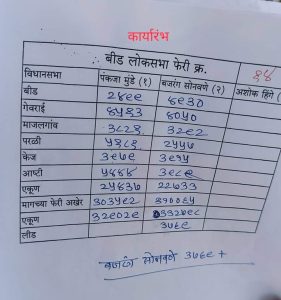 कार्यारंभ
बीड लोकसभा फेरी क्र. १४
विधानसभा पंकजा मुंडे (१) बजरंग सोनवणे (२) अशोक हिंगे (
बीड २४९९ ४९३०
गेवराई ४५१३ ४०५०
माजलगांव ३८२१ ३२९२
परळी ५१८१ २५५७
केज ३९७९ ३९१५
आष्टी ५४४४ ३९८९
एकूण २५४३७ २२७३३
मागच्या फेरी अखेर ३०३५९२ ३१००६५
एकूण ३२९०२९ ३३२७९८
लीड ३७६९
बजरंग सोनवणे ३७६९ +